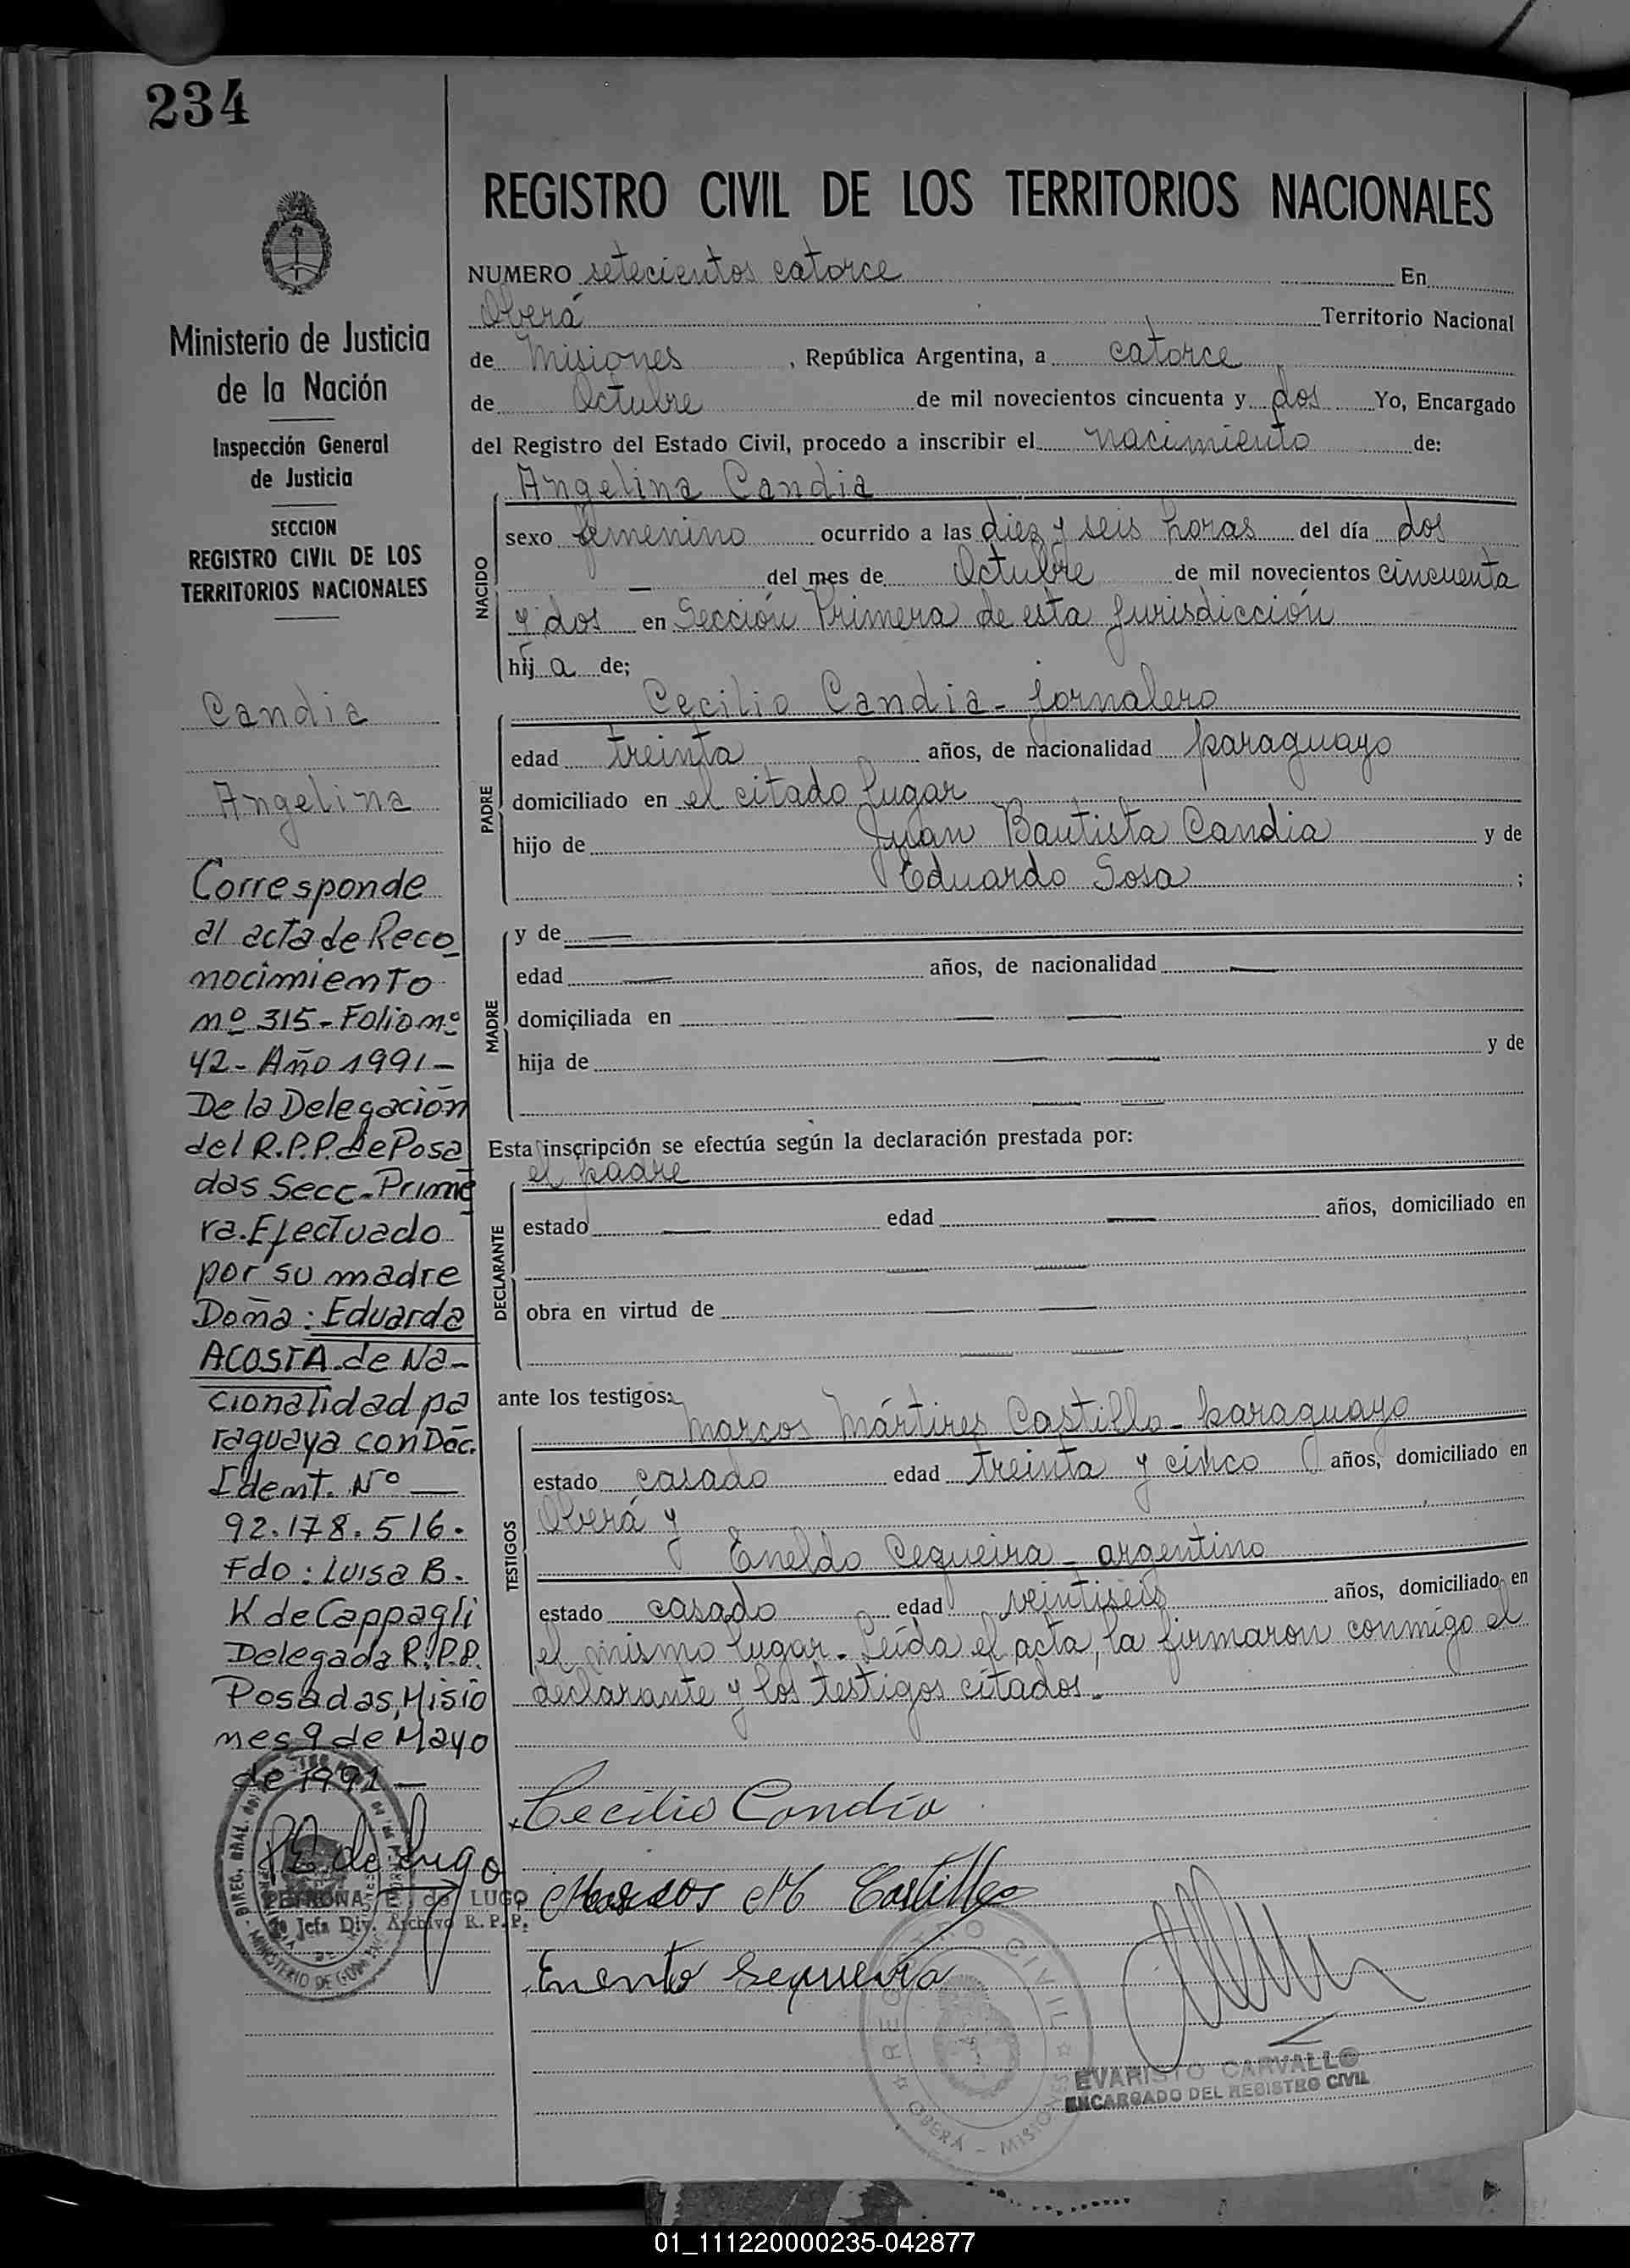 234
REGISTRO CIVIL DE LOS TERRITORIOS NACIONALES
Ministerio de Justicia
de la Nación
Inspección General
de Justicia
SECCION
REGISTRO CIVIL DE LOS
TERRITORIOS NACIONALES
Candia
Angelina
Corresponde
al acta de Reco
nocimiento
nº 315 - Folio nº
42 - Año 1991 -
De la Delegación
del R.P.P. de Posa
das Secc. Prime
ra. Efectuado
por su madre
Doña: Eduarda
ACOSTA de Na-
cionalidad pa
raguaya con Doc.
Ident. Nº —
92.178.516.
Fdo: Luisa B.
K de Cappagli
Delegada R.P.P.
Posadas, Misio
nes 9 de Mayo
de 1991 —
P E de Lugo
PETRONA E. de LUGO
Jefa Div. Archivo R. P. P.
NUMERO setecientos catorce En
Oberá Territorio Nacional
de Misiones , República Argentina, a catorce
de Octubre de mil novecientos cincuenta y dos Yo, Encargado
del Registro del Estado Civil, procedo a inscribir el nacimiento de:
Angelina Candia
NACIDO
sexo femenino ocurrido a las diez y seis horas del día dos
— del mes de Octubre de mil novecientos cincuenta
y dos en Sección Primera de esta Jurisdicción
hij a de;
Cecilio Candia - Jornalero
PADRE
edad treinta años, de nacionalidad paraguayo
domiciliado en el citado lugar
hijo de Juan Bautista Candia y de
Eduardo Sosa ;
MADRE
y de —
edad — años, de nacionalidad —
domiciliada en — —
hija de — — y de
— —
Esta inscripción se efectúa según la declaración prestada por:
el padre
DECLARANTE
estado — edad — años, domiciliado en
— —
obra en virtud de — —
— —
ante los testigos:
Marcos Mártires Castillo - paraguayo
TESTIGOS
estado casado edad treinta y cinco años, domiciliado en
Oberá y
Eneldo Cequeira - argentino
estado casado edad veintiseis años, domiciliado en
el mismo lugar. Leída el acta, la firmaron conmigo el
declarante y los testigos citados.
Cecilio Candia
Marcos M Castillo
Sequeira
REGISTRO CIVIL
OBERÁ - MISIONES
EVARISTO CARVALLO
ENCARGADO DEL REGISTRO CIVIL
01_111220000235-042877